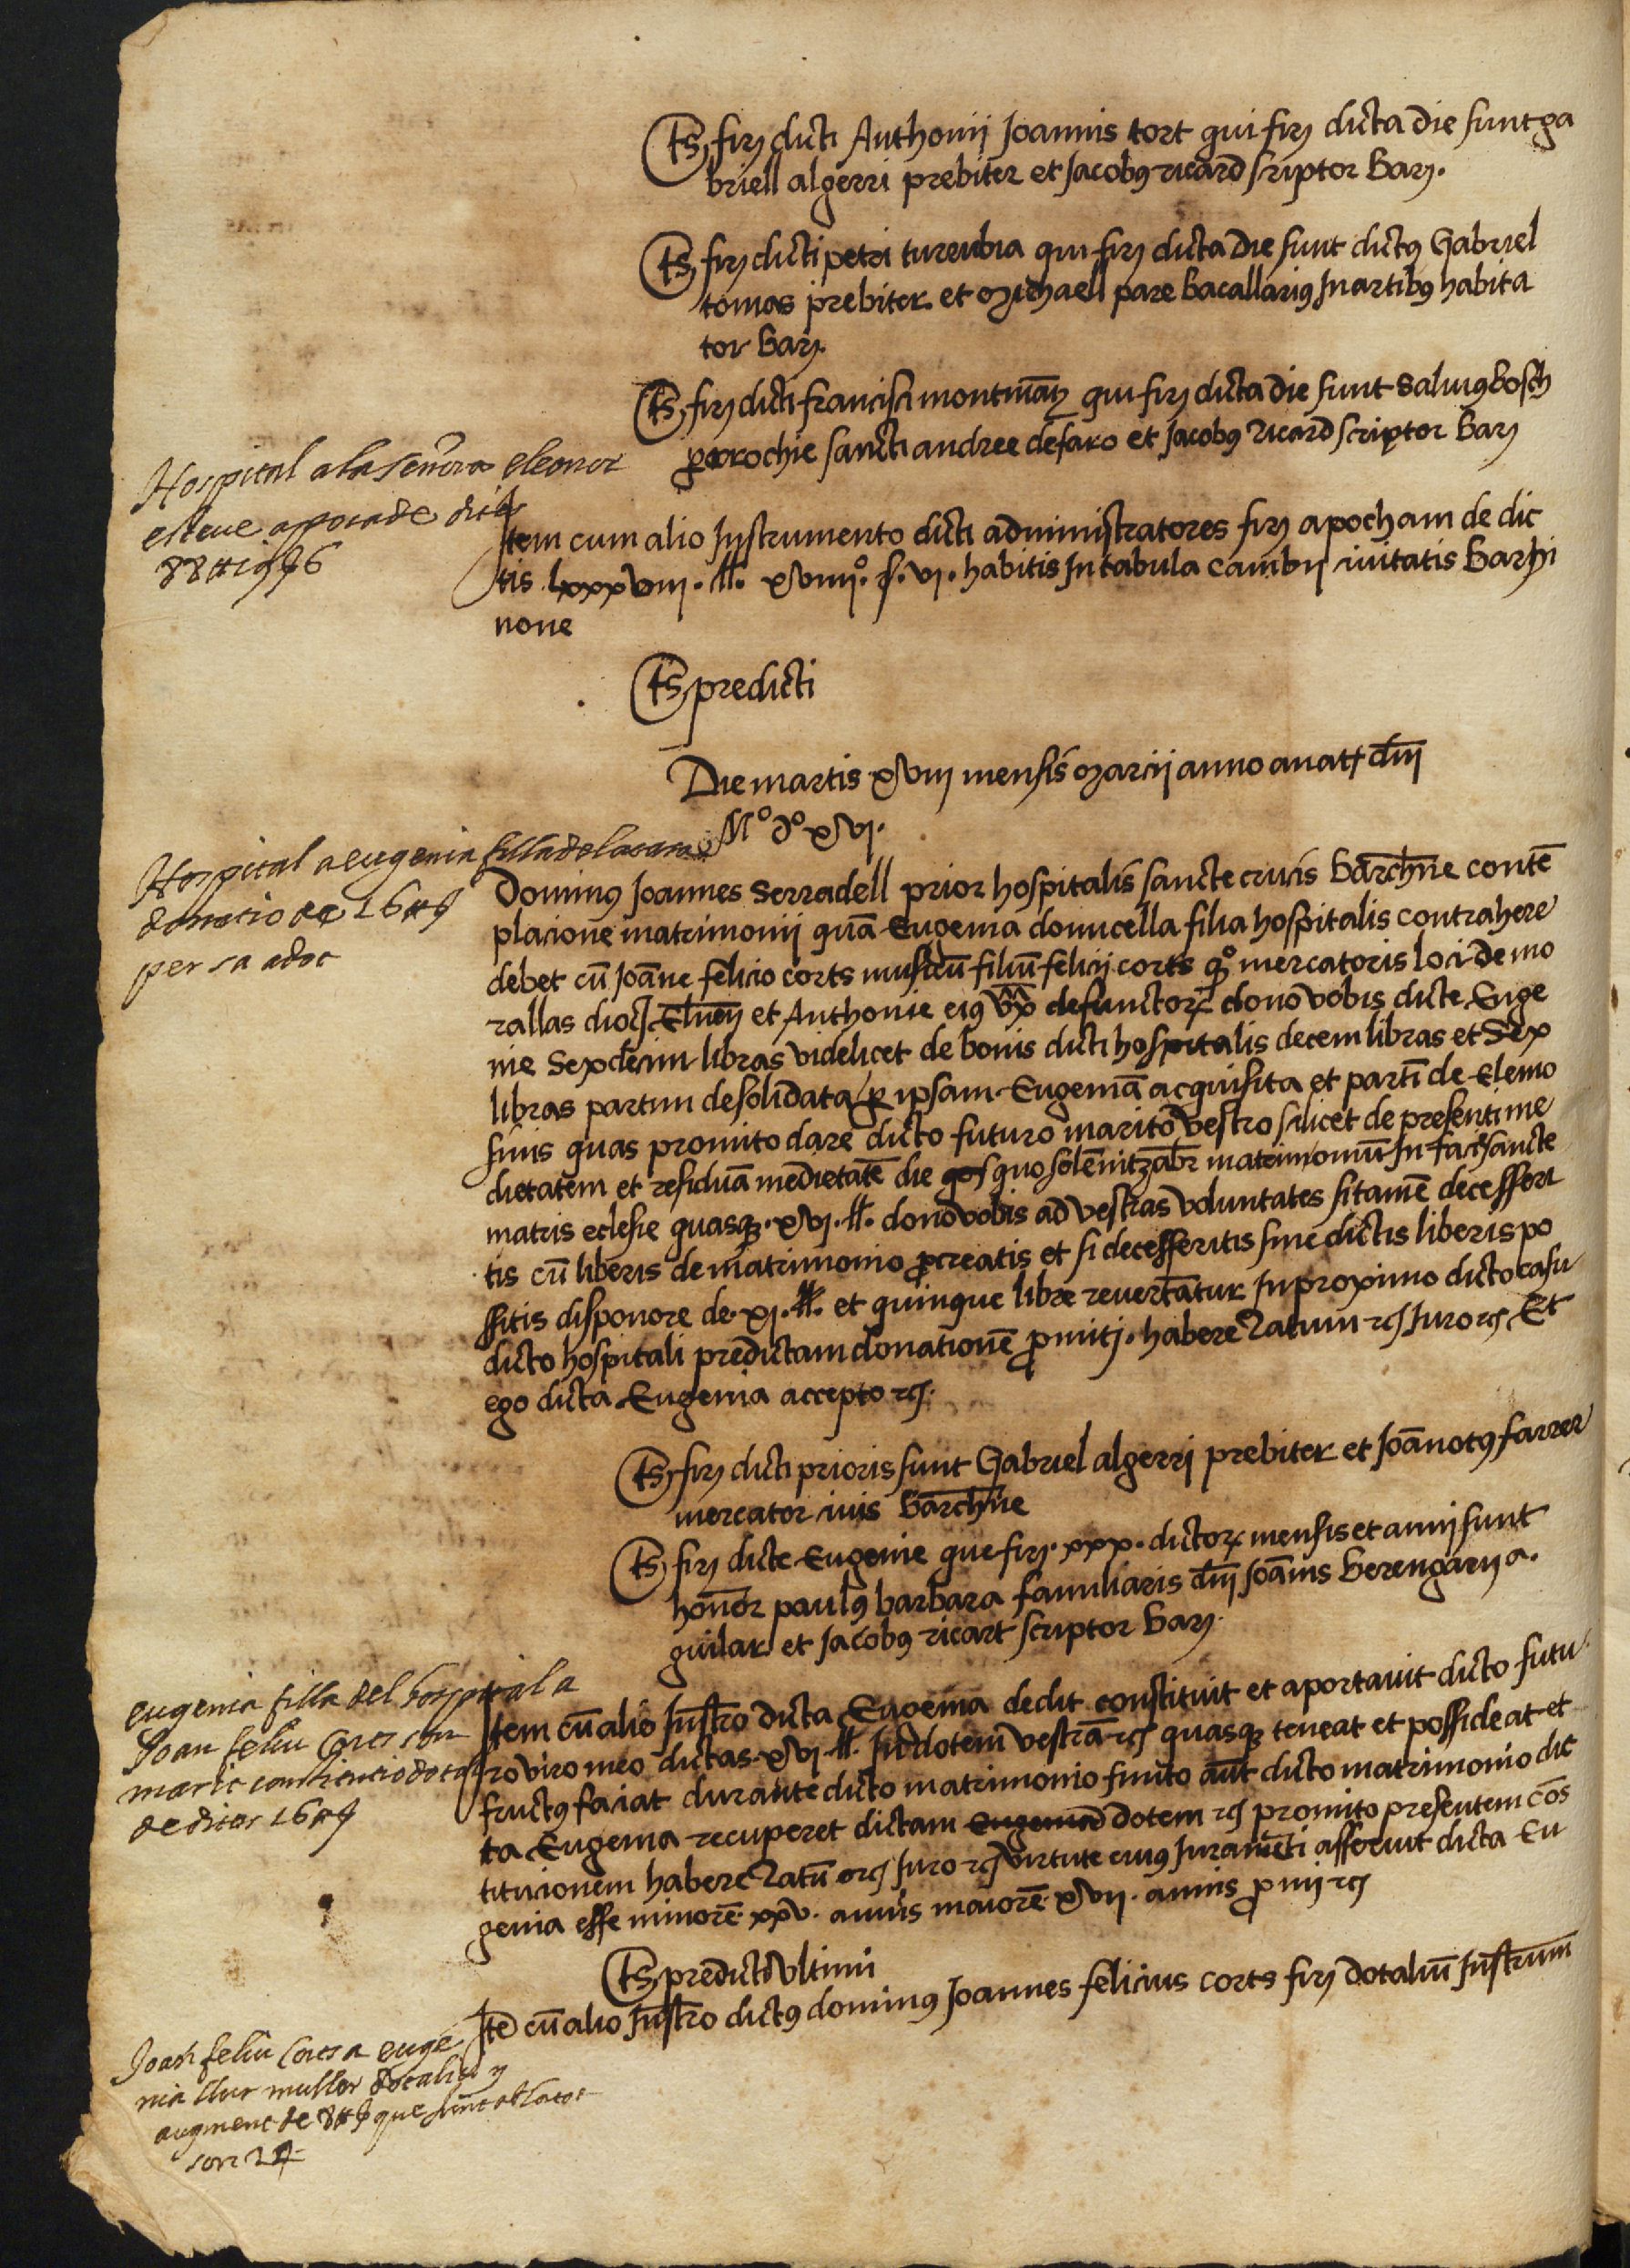 Ts firz dicti Anthonij Joannis tort qui firz dicta die sunt ga
briell algerri prebiter et Jacobus ricard scriptor barz.
Ts firz dicti petri turenbia qui firz dicta die sunt dictus Gabriel
tomas prebiter et Michaell pare bacallarius In artibus habita
tor barz.
Ts firz dicti francisci qui firz dicta die sunt Saluius bosch
perrochie sancti andree de faro et Jacobus Ricard scriptor barz
Hospital a la senora eleonor
esteue apoca de dites
88 ll 19 s 6
Item cum alio Instrumento dicti administratores firz apocham de dic
tis lxxxviii. ll. xviiijº. s. vi. habitis In tabula cambij civitatis barchi
none
Ts predicti
Die martis xviij mensis marcij anno anatt dni
Mº dº xvi.
Hospital a eugenia filla de la casa
donatio de 16 ll s
per sa adot
Dominus Joannes Serradell prior hospitalis sancte crucis barchne conte
placione matrimonij qua Eugenia domicella filia hospitalis contrahere
debet cu Joane felicio corts musicu filiu felicij corts qº mercatoris loci de mo
rallas dioc Elnen et Anthonie eius vx defunctor dono vobis dicte Euge
nie Sexdecim libras videlicet de bonis dicti hospitalis decem libras et Sex
libras partim de solidata per ipsam Eugenia acquisita et parti de elemo
sinis quas promito dare dicto futuro marito vestro scilicet de presenti me
dietatem et residua medietate die quo solenitzabr matrimoniu In facie sancte
matris eclesie quasq. xvi. ll. dono vobis ad vestras voluntates si tame decesseri
tis cu liberis de matrimonio procreatis et si decesseritis sine dictis liberis po
ssitis disponere de. xi. ll. et quinque libre revertatur In proximo dicto casu
dicto hospitali predictam donatione promitj. habere Ratum rc Juro rc Et
ego dicta Eugenia accepto rc.
Ts firz dicti prioris sunt Gabriel algerrj prebiter et Joanotus farrer
mercator civis barchne
Ts firz dicte Eugenie que firz. xxx. dictor mensis et annj sunt
honor paulus barbara familiaris dnj Joanis berengarij a.
guilar et Jacobus ricart scriptor barz.
eugenia filla del hospital a
Joan feliu Corts son
marit constitucio dotal
de dites 16 ll s
Item cu alio Instro dicta Eugenia dedit constituit et aportavit dicto futu
ro viro meo dictas. xvi. ll. In dotem vestra rc quasq teneat et possideat et
fructus faciat durante dicto matrimonio finito aut dicto matrimonio dic
ta Eugenia recuperet dictam Eugenia dotem rc promito presentem cos
titucionem habere Ratu rc Juro rc virtute cuius Jurameti asseruit dicta Eu
genia esse minore. xxv. annis maiore. xvii. annis pmij rc
Ts predicti vltimi
Joan feliu Corts a euge
nia llur muller dotalici y
augment de 8 ll s que
son 24
Ite cu alio Instro dictus dominus Joannes felicius corts firz dotaliu Instrum